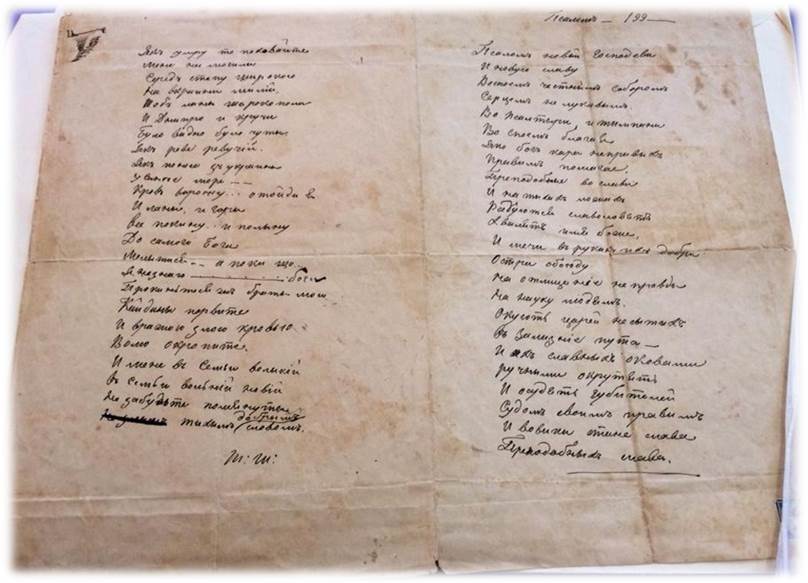 Якъ умру то поховайте
Мене на могили
Середъ степу широкого
На вкраини милій.
Щобъ ланы широкополи
И Днипро и кручи
Було видно було чуты
Якъ реве ревучій.
Якъ понесе зъ украины
У синее море
Кровъ ворожу... отойду я
И ланы, и горы
Все покину, и полыну
До самого Бога
Молытися.. а поки що
Я не знаю .......... бога
Поховайте та
Кайданы порвите
И вражою злою кровью
Волю окропите.
И мене въ семьи великій
Въ семьи вольній новій
Не забудьте помянути
добрымъ
тихимъ словомъ.
Т: Ш:
Псаломъ — 199 —
Псаломъ новый Господеви
И новую славу
Воспоемъ честнымъ соборомъ
Серцемъ не лукавымъ.
Во псалтыри, и тымпани
Во спѣемъ благая
Яко богъ кара неправыхъ
Правымъ помогае.
Преподобные во слави
И на тихихъ ложахъ
Радуются славословятъ
Хвалятъ имя божіе,
И мечи въ рукахъ ихъ добри
Остри обоюду
На отмщеніе не правды
На науку людямъ.
Окуютъ царей несытыхъ
Въ зализніе пута —
И ихъ славныхъ оковами
Ручными окрутятъ
И осудятъ губителей
Судомъ своимъ правымъ
И вовики стане слава
Преподобныхъ слава.